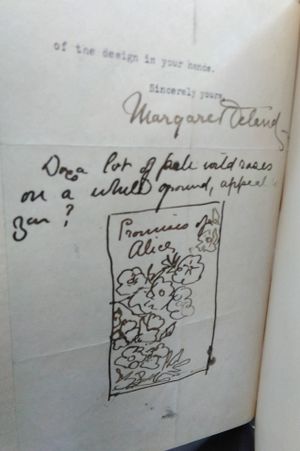 of the design in your hands.
Sincerely yours,
Margaret Deland
Does a lot of pale wild roses
on a white ground, appeal
you?
Promises of
Alice